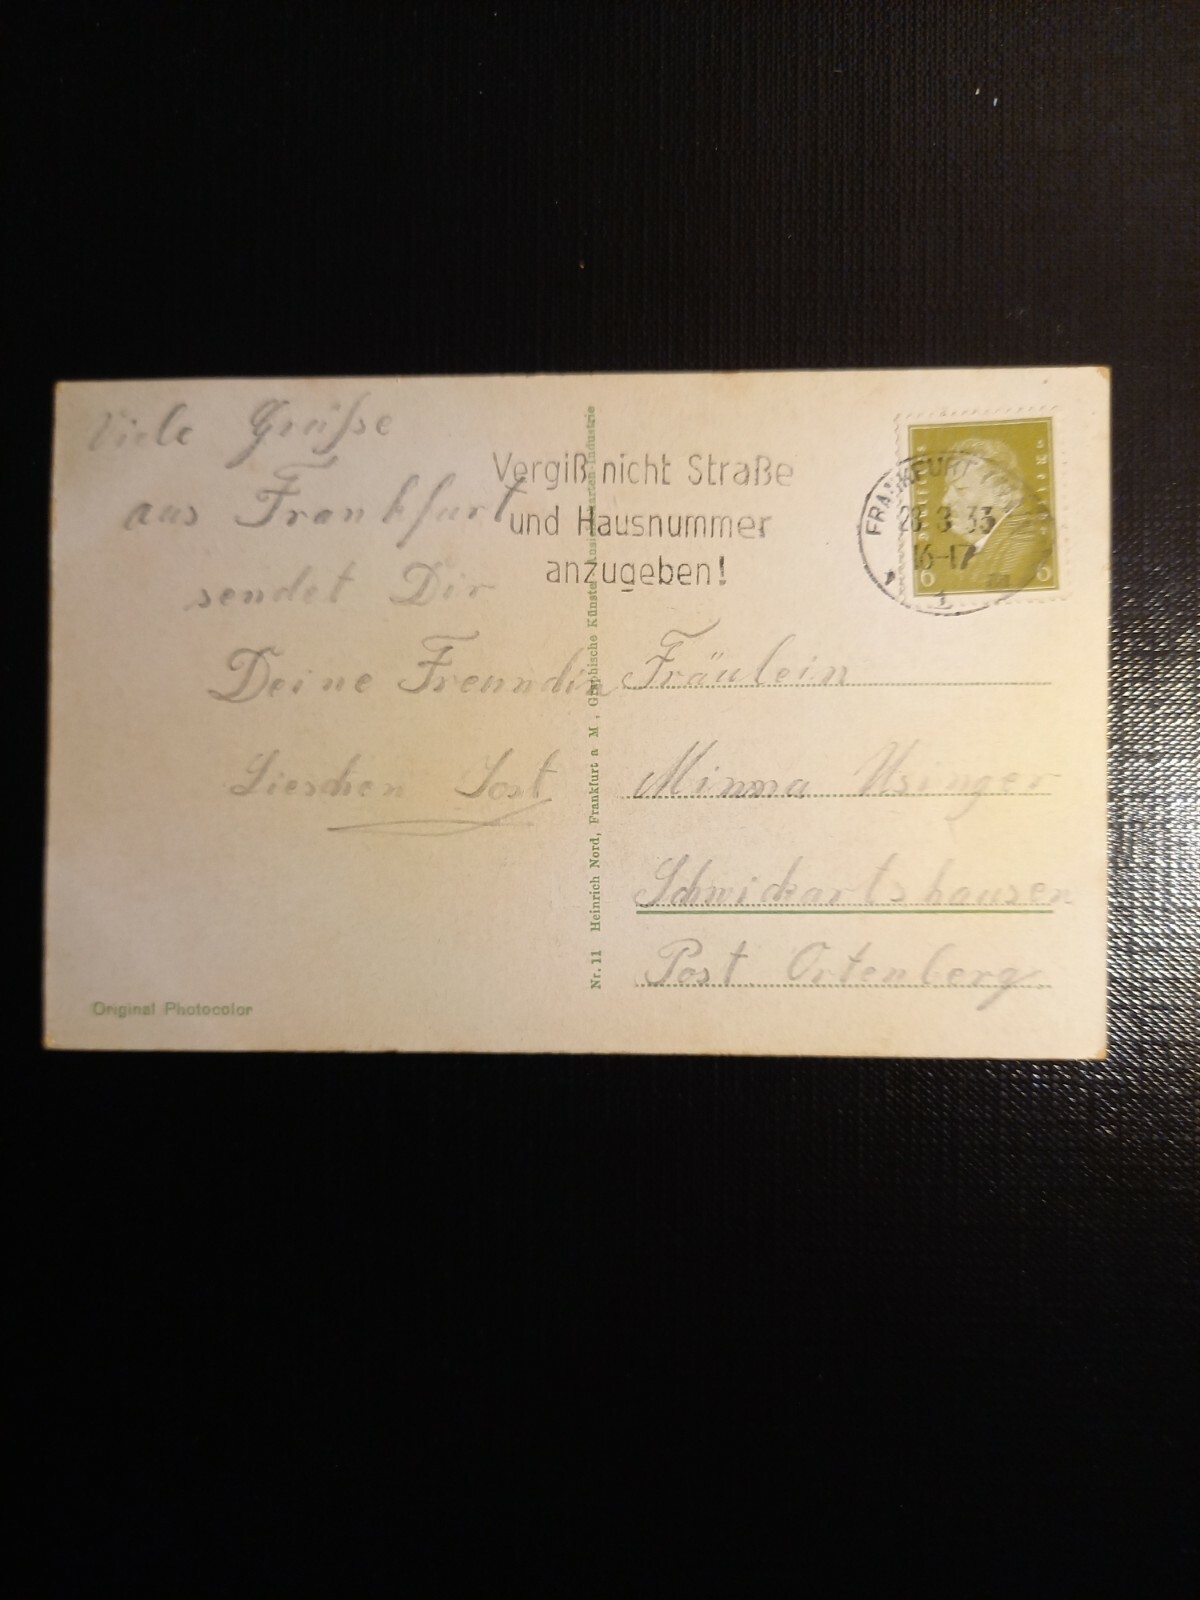 Viele Grüße
aus Frankfurt
sendet Dir
Deine Freundin
Lieschen Jost
Original Photocolor
Vergiß nicht Straße
und Hausnummer
anzugeben!
Nr. 11 Heinrich Nord, Frankfurt a M, Graphische Künste, Ansichtskarten-Industrie
FRANKFURT
3 33
16-17
6 6
Fräulein
Minna Usinger
Schwickartshausen
Post Ortenberg.